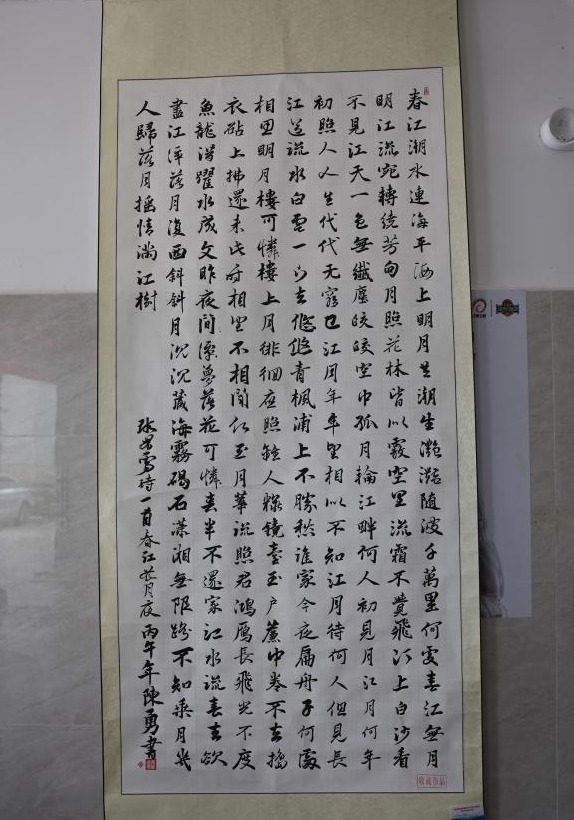 春江潮水連海平海上明月共潮生灩灩隨波千萬里何處春江無月
明江流宛轉繞芳甸月照花林皆似霰空里流霜不覺飛汀上白沙看
不見江天一色無纖塵皎皎空中孤月輪江畔何人初見月江月何年
初照人人生代代无窮已江月年年望相似不知江月待何人但見長
江送流水白雲一片去悠悠青楓浦上不勝愁誰家今夜扁舟子何處
相思明月樓可憐樓上月徘徊應照離人粧鏡臺玉户簾中卷不去搗
衣砧上拂還来此时相望不相聞願逐月華流照君鴻鴈長飛光不度
魚龍潛躍水成文昨夜閒潭夢落花可憐春半不還家江水流春去欲
盡江潭落月復西斜斜月沉沉藏海霧碣石瀟湘無限路不知乘月幾
人歸落月摇情滿江樹
張若虛詩一首春江花月夜丙午年陳勇書